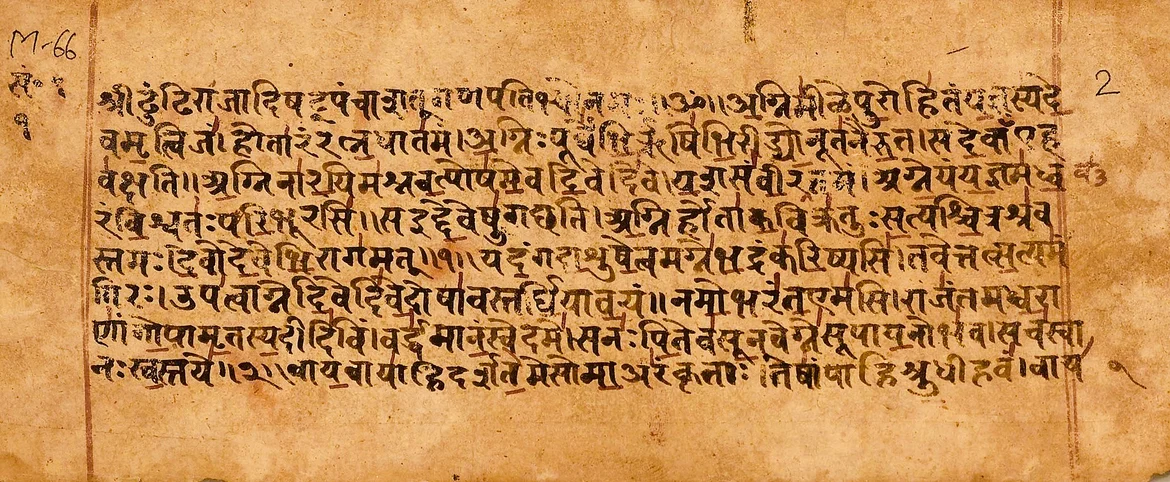 M-66
2
सं॰ १
१
श्रीढुंढिराजादिषद्रूपंचा गणपतिभ्योनमः॥ॐ॥अग्निमीळेपुरोहितंयज्ञस्यदे
वमृत्विजं।होतारंरत्नधातमं।अग्निःपूर्वेभिर्ऋषिभिरीड्योनूतनैरुत।सदेवाँएह
वक्षति॥अग्निनारयिमश्नवत्पोषमेवदिवेदिवे।यशसंवीरवत्तमं।अग्नेयंयज्ञमध्व
रंविश्वतःपरिभूरसि॥सइद्देवेषुगछति।अग्निर्होताकविक्रतुःसत्यश्चित्रश्रव
स्तमः।देवोदेवेभिरागमत्॥१॥यदंगदाशुषेत्वमग्नेभद्रंकरिष्यसि।तवेत्तत्सत्यमं
गिरः।उपत्वाग्नेदिवेदिवेदोषावस्तर्धियावयं॥नमोभरंतएमसि।राजंतमध्वरा
णांगोपामृतस्यदीदिविं।वर्द्धमानंस्वेदमे।सनःपितेवसूनवेग्नेसूपायनोभव।सचस्वा
नःस्वस्तये॥२॥वायवायाहिदर्शतेमेसोमाअरंकृताः।तेषांपाहिश्रुधीहवं।वाय